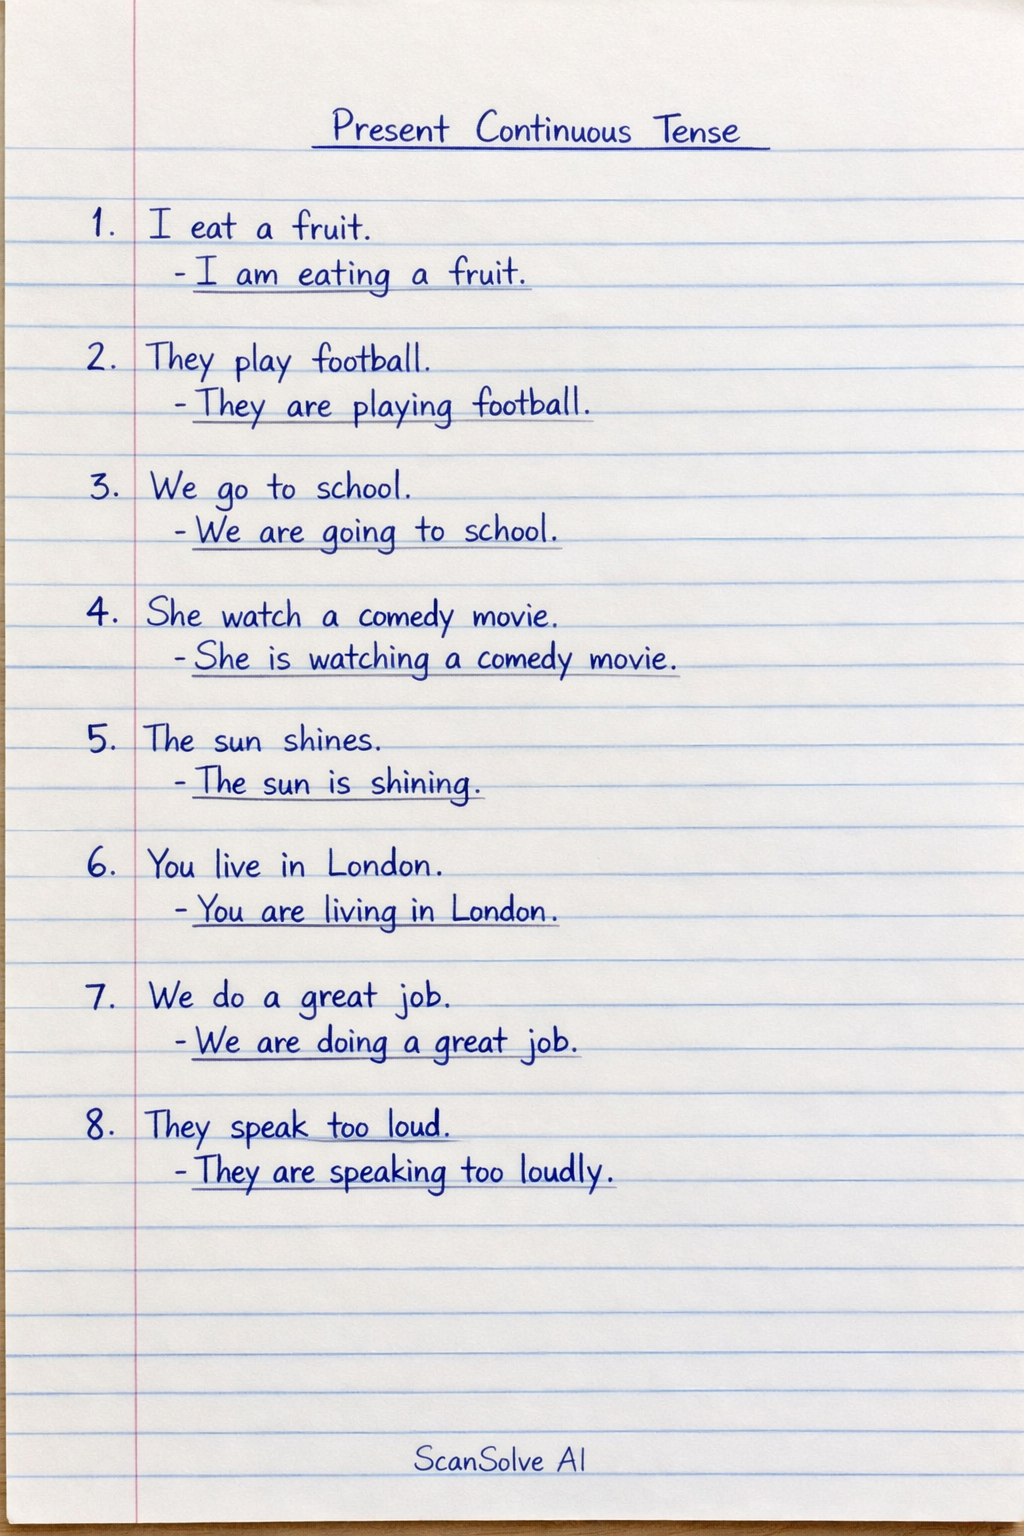 Present Continuous Tense
1. I eat a fruit.
- I am eating a fruit.
2. They play football.
- They are playing football.
3. We go to school.
- We are going to school.
4. She watch a comedy movie.
- She is watching a comedy movie.
5. The sun shines.
- The sun is shining.
6. You live in London.
- You are living in London.
7. We do a great job.
- We are doing a great job.
8. They speak too loud.
- They are speaking too loudly.
ScanSolve AI